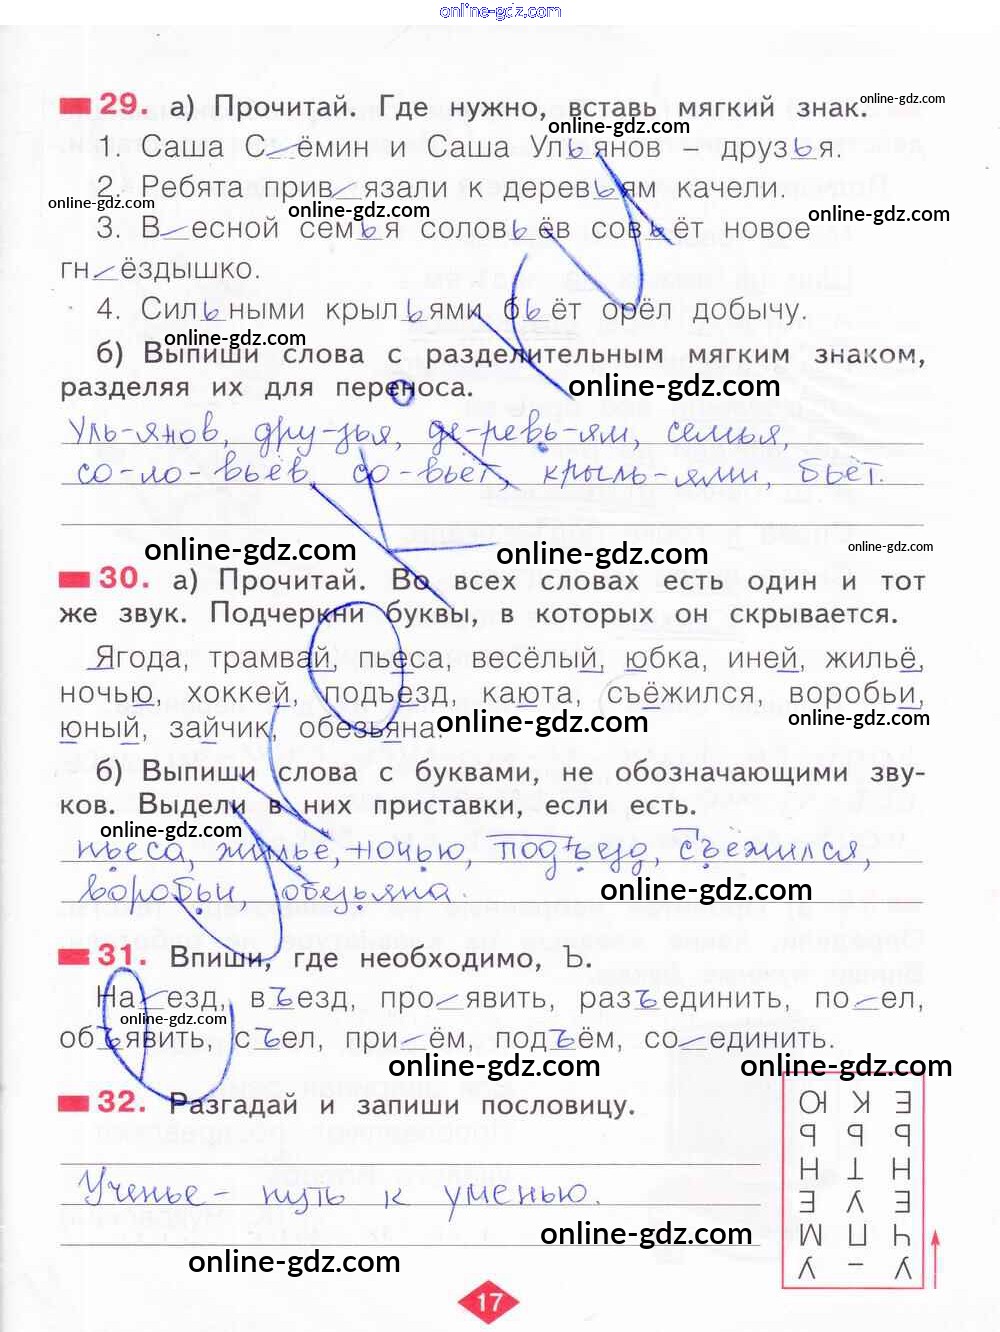 online-gdz.com
29. а) Прочитай. Где нужно, вставь мягкий знак. online-gdz.com
online-gdz.com
1. Саша С_ёмин и Саша Ульянов – друзья.
2. Ребята прив_язали к деревьям качели.
online-gdz.com online-gdz.com online-gdz.com
3. В_есной семья соловьёв совьёт новое
гн_ёздышко.
4. Сильными крыльями бьёт орёл добычу.
online-gdz.com
б) Выпиши слова с разделительным мягким знаком,
разделяя их для переноса. online-gdz.com
Уль-янов, дру-зья, де-ревь-ям, семья,
со-ло-вьёв, со-вьёт, крыль-ями, бьёт.
online-gdz.com online-gdz.com online-gdz.com
30. а) Прочитай. Во всех словах есть один и тот
же звук. Подчеркни буквы, в которых он скрывается.
Ягода, трамвай, пьеса, весёлый, юбка, иней, жильё,
ночью, хоккей, подъезд, каюта, съёжился, воробьи,
online-gdz.com online-gdz.com
юный, зайчик, обезьяна.
б) Выпиши слова с буквами, не обозначающими зву-
ков. Выдели в них приставки, если есть.
online-gdz.com
пьеса, жильё, ночью, подъезд, съёжился,
воробьи, обезьяна. online-gdz.com
31. Впиши, где необходимо, Ъ.
На_езд, въезд, про_явить, разъединить, по_ел,
online-gdz.com
объявить, съел, при_ём, подъём, со_единить.
online-gdz.com online-gdz.com online-gdz.com
32. Разгадай и запиши пословицу.
Ученье – путь к уменью.
Е К Ю
Ь Ь Ь
Н Т Н
Е У Е
Ч П М
У – У
online-gdz.com online-gdz.com
17